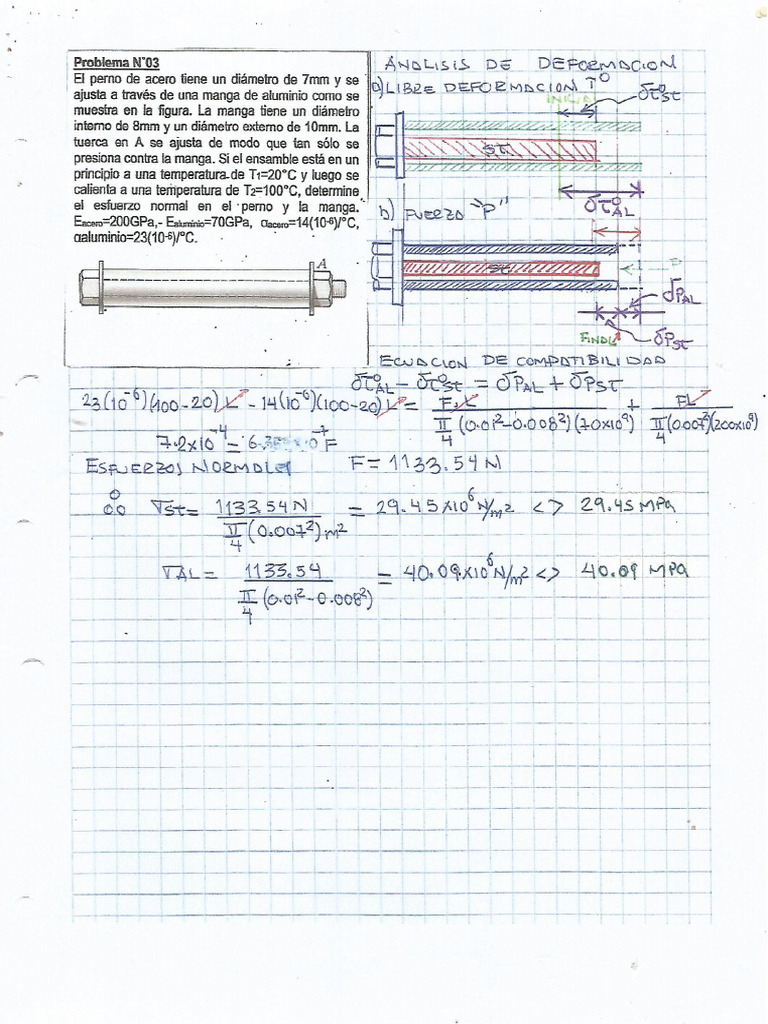 Problema N°03
El perno de acero tiene un diámetro de 7mm y se
ajusta a través de una manga de aluminio como se
muestra en la figura. La manga tiene un diámetro
interno de 8mm y un diámetro externo de 10mm. La
tuerca en A se ajusta de modo que tan sólo se
presiona contra la manga. Si el ensamble está en un
principio a una temperatura de T₁=20°C y luego se
calienta a una temperatura de T₂=100°C, determine
el esfuerzo normal en el perno y la manga.
Eacero=200GPa,- Ealuminio=70GPa, αacero=14(10⁻⁶)/°C,
αaluminio=23(10⁻⁶)/°C.
A
ANALISIS DE DEFORMACION
a) LIBRE DEFORMACION T°
INICIAL
δt°st
st
δt°AL
b) FUERZO "P"
st
P
δPAL
FINAL
δPst
ECUACION DE COMPATIBILIDAD
δt°AL - δt°st = δPAL + δPST
23(10⁻⁶)(100-20)L - 14(10⁻⁶)(100-20)L = F.L / π/4 (0.01²-0.008²)(70x10⁹) + FL / π/4 (0.007²)(200x10⁹)
7.2x10⁻⁴ = F
ESFUERZOS NORMALES F = 1133.54 N
∴ σst = 1133.54 N / π/4 (0.007²) m² = 29.45x10⁶ N/m² <> 29.45 MPa
σAL = 1133.54 / π/4 (0.01²-0.008²) = 40.09x10⁶ N/m² <> 40.09 MPa